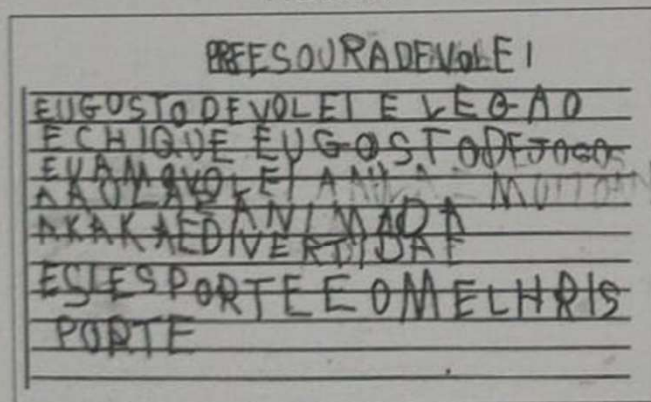 PREESOURADEVOLEI
EUGOSTODEVOLEI E LEGAO
ECHIQUE EUGOSTODEJOGO
EUAMOVOLEI
AAULA ANIMADA
AKAKAEDIVERTIDAE
ESIESPORTEEOMELHRIS
PORTE